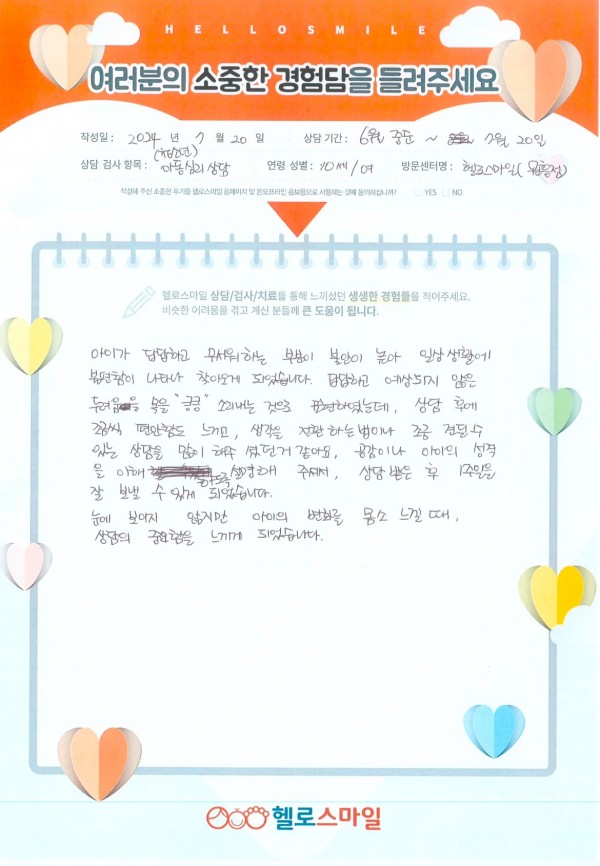 HELLOSMILE
여러분의 소중한 경험담을 들려주세요
작성일 : 2024 년 7 월 20 일 상담 기간 : 6월 중순 ~ 7월 20일
(청소년)
상담 검사 항목 : 아동심리상담 연령 성별 : 10세/여 방문센터명 : 헬로스마일(목흥점)
작성해 주신 소중한 후기를 헬로스마일 홈페이지 및 온오프라인 홍보용으로 사용하는 것에 동의하십니까? YES NO
헬로스마일 상담/검사/치료를 통해 느끼셨던 생생한 경험들을 적어주세요.
비슷한 어려움을 겪고 계신 분들께 큰 도움이 됩니다.
아이가 답답하고 무서워하는 부분이 불안이 높아 일상생활에
불편함이 나타나 찾아오게 되었습니다. 답답하고 예상되지 않은
두려움을 목을 "킁킁" 소리내는 것으로 표현하였는데, 상담 후에
조금씩 편안함도 느끼고, 생각을 전환하는 법이나 조금 견딜수
있는 상담을 많이 해주셨던거 같아요. 공감이나 아이의 성격
을 이해하도록 설명해 주셔서, 상담 받은 후 1주일을
잘 보낼 수 있게 되었습니다.
눈에 보이지 않지만 아이의 변화를 몸소 느낄 때,
상담의 중요함을 느끼게 되었습니다.
헬로스마일